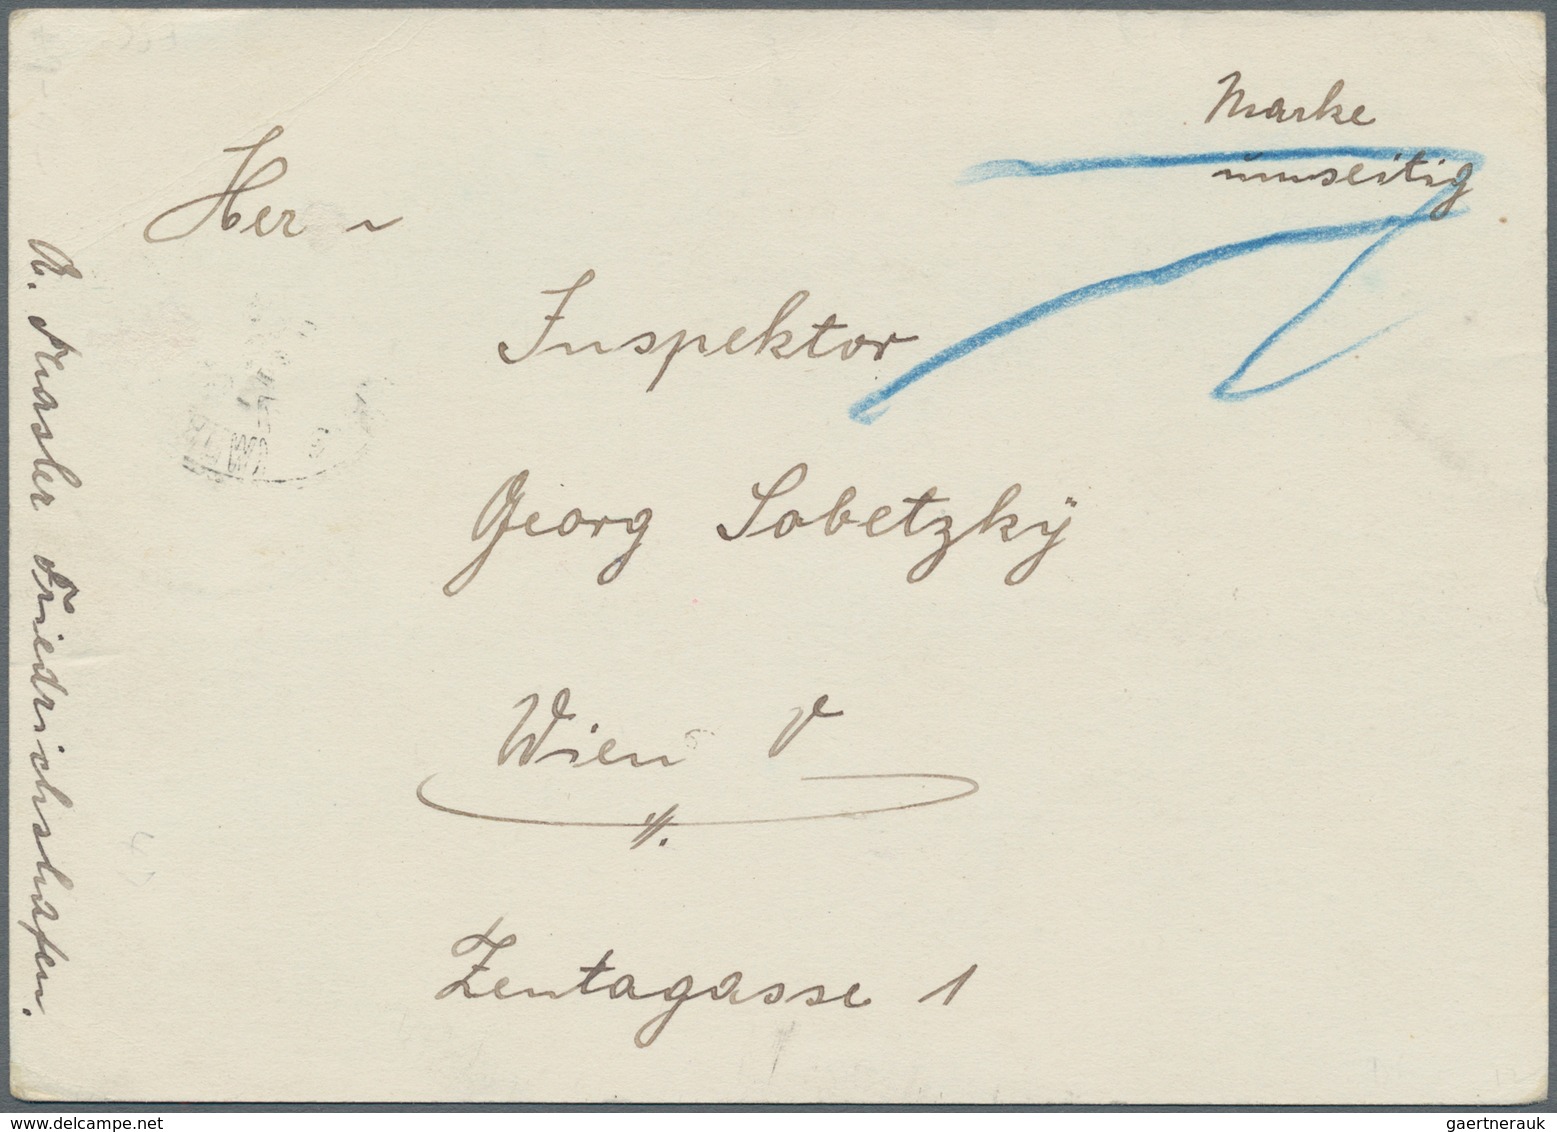 Marke
umseitig
Herrn
Inspektor
Georg Sobetzky
Wien V
Zentagasse 1
A. Strasler Friedrichshafen.
delcampe.net
gaertnerauk